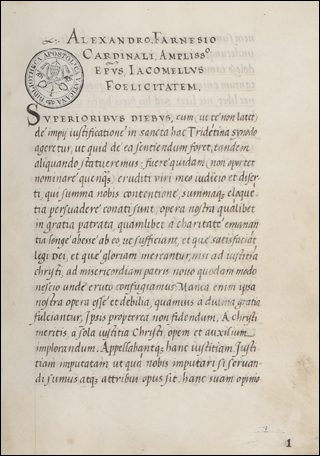 ALEXANDRO, FARNESIO
CARDINALI, AMPLISSO
EPUS, IACOMELLUS
FOELICITATEM.
BIBLIOTHECA APOSTOLICA VATICANA
SUPERIORIBUS DIEBUS, cum, ut te non latet
de impij iustificatione in sancta hac Tridẽtina synodo
ageretur, ut quid de ea sentiendum foret, tandem
aliquando statueremus: fuere quidam, non oportet
nominare quenq̃, eruditi viri meo iudicio et diser
ti, qui summa nobis contentione, summaq; eloquẽ
tia persuadere conati sunt, opera nostra qualibet
in gratia patrata, quamlibet a charitate emanan
tia longe abesse ab eo, ut sufficiant, et que satisfaciãt
legi dei, et que gloriam mereantur, nisi ad iustitiã
christi, ad misericordiam patris novo quodam modo
nescio unde eruto confugiamus. Manca enim ipsa
nostra opera esse et debilia, quamvis a divina gratia
fulciantur, Ipsis propterea non fidendum. A Christi
meritis, a sola iustitia Christi, opem et auxilium
implorandum. Appellabantq; hanc iustitiam, Iusti
tiam imputatam, ut qua nobis imputari si servan
di sumus atq; attribui opus sit. hanc suam opinio
1